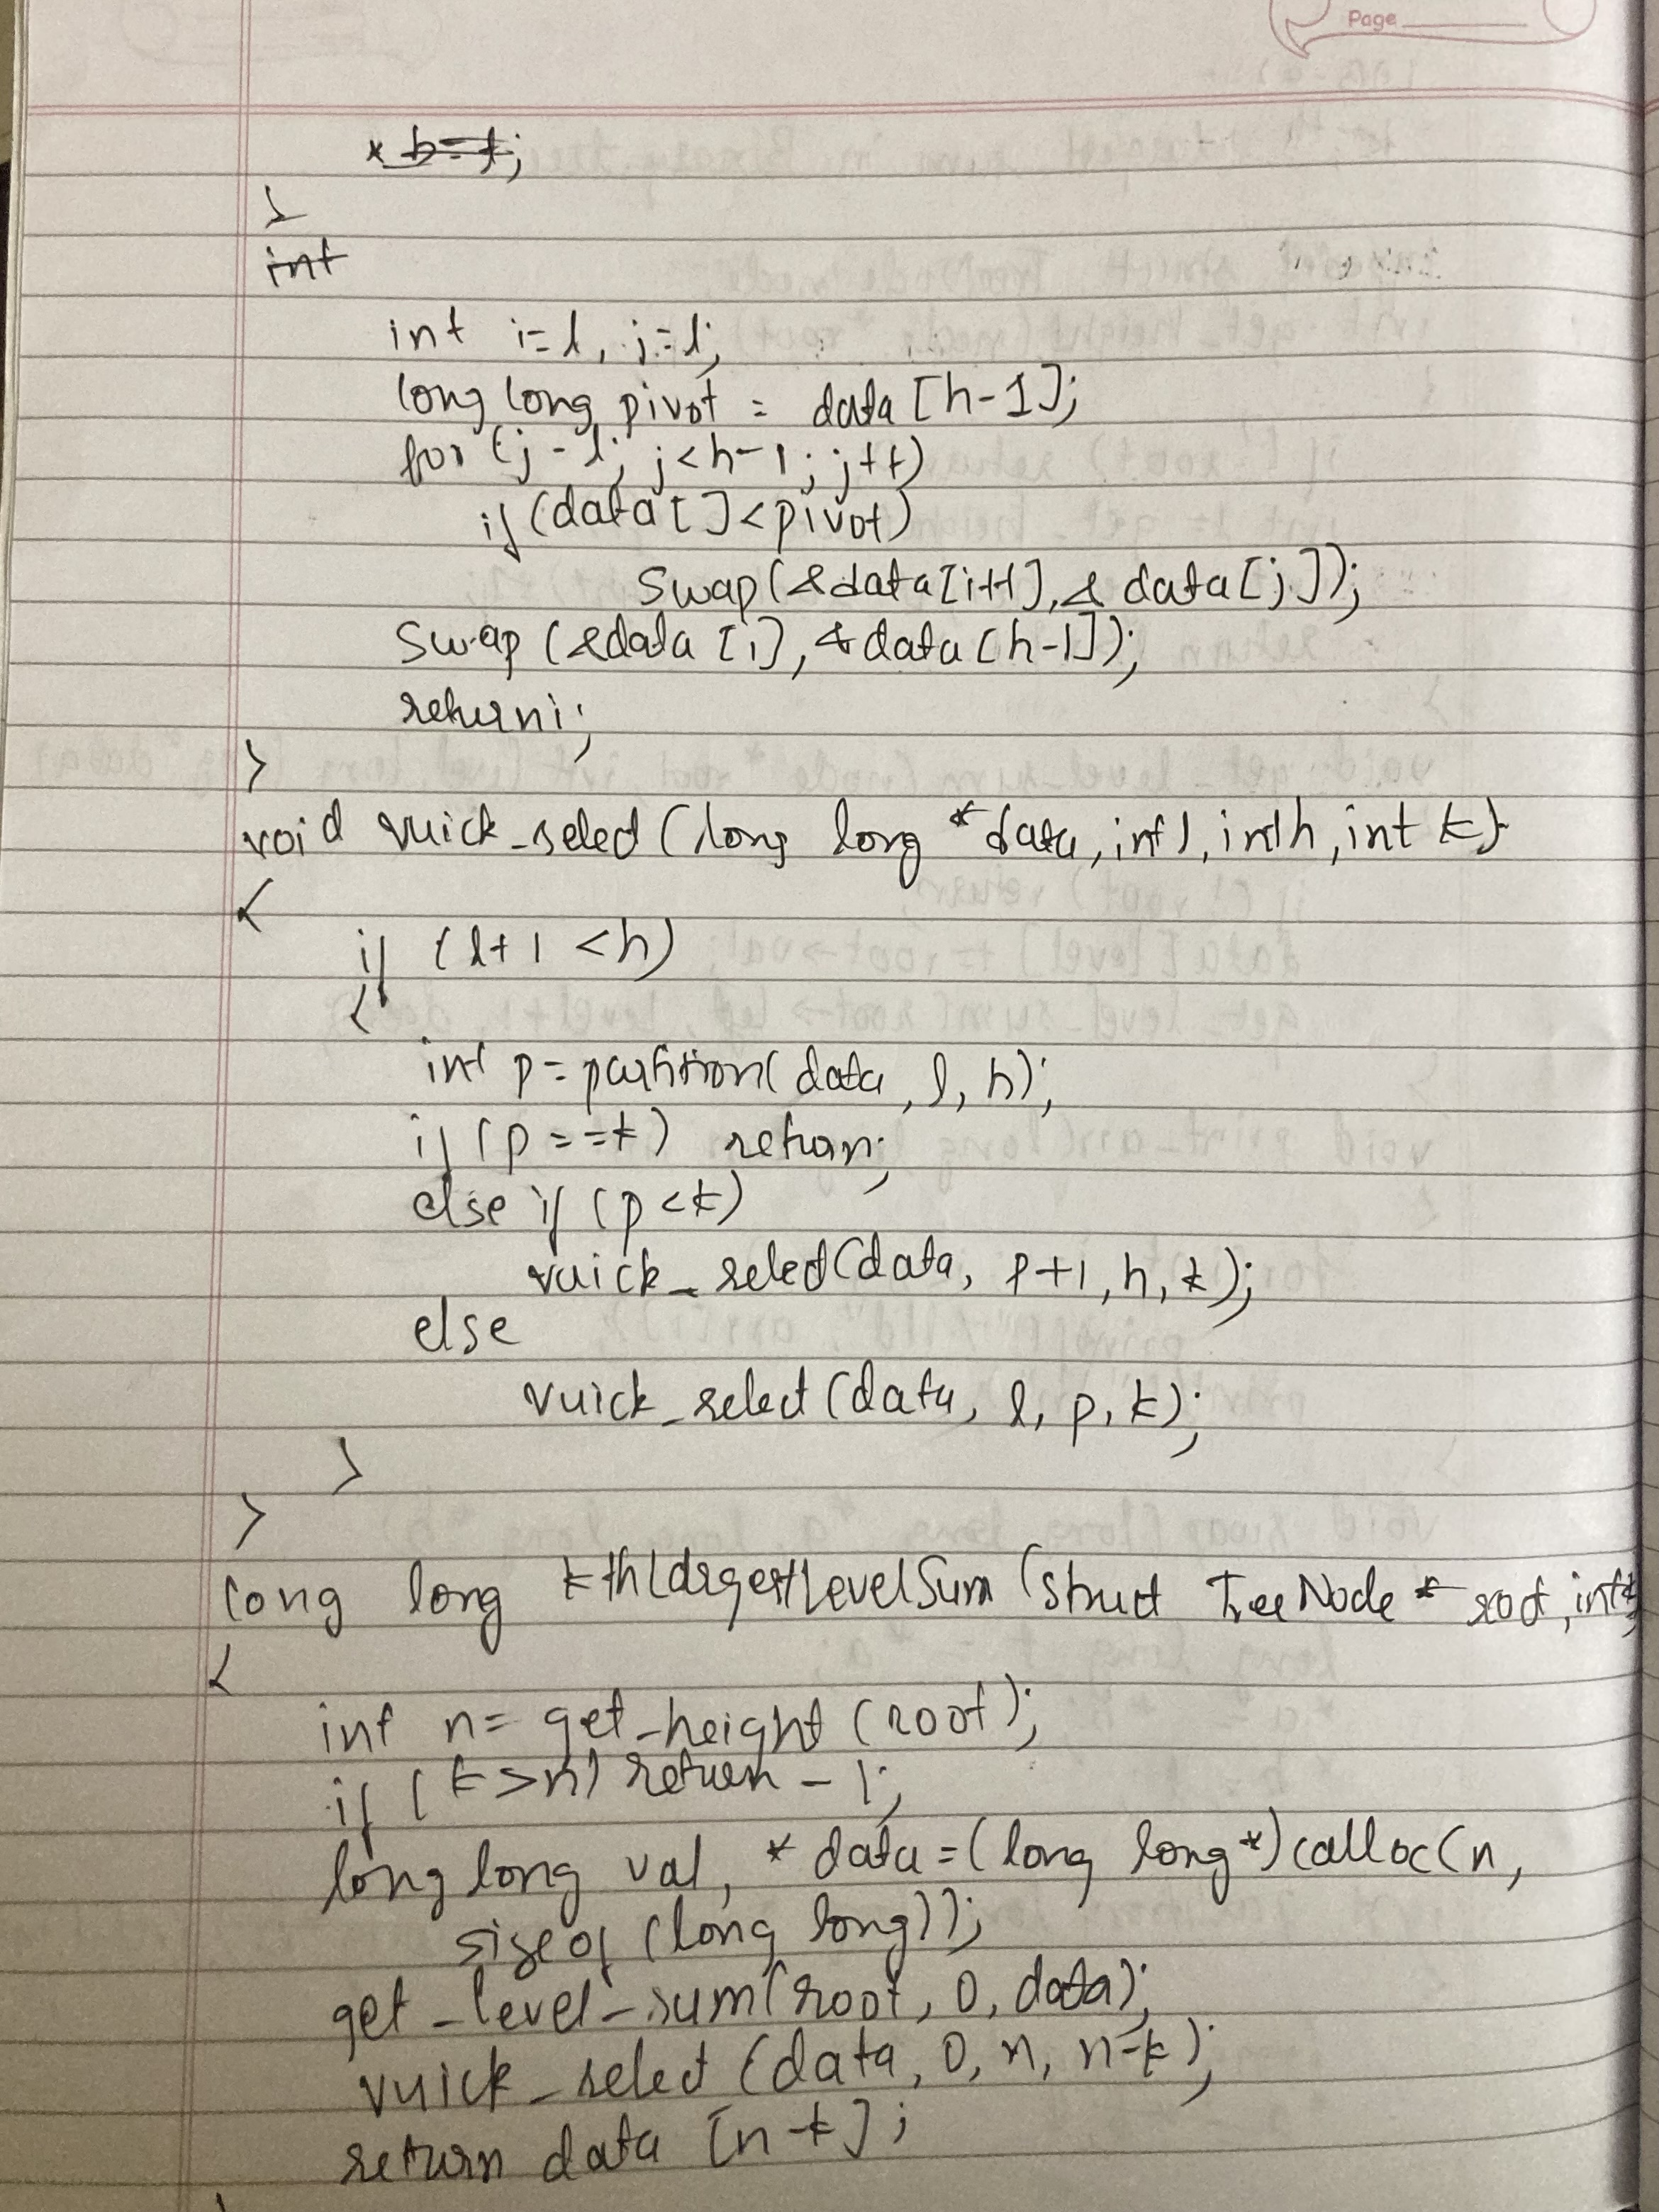 Page
* b=t;
}
int
int i=l, j=l;
long long pivot = data [h-1];
for (j=l; j<h-1; j++)
if (data[ ]<pivot)
swap(&data[i++], & data[j]);
swap (&data [i], &data [h-1]);
return i;
}
void vuick_select (long long *data, int l, int h, int k)
{
if (l+1 <h)
{
int p=partition( data, l, h);
if (p==k) return;
else if (p<k)
vuick_select(data, p+1, h, k);
else
vuick_select (data, l, p, k);
}
}
long long kthLargestLevelSum (struct TreeNode * root, int k)
{
int n= get_height (root);
if (k>n) return -1;
long long val, * data=(long long*) calloc(n,
sizeof (long long));
get_level_sum(root, 0, data);
vuick_select (data, 0, n, n-k);
return data [n-k];